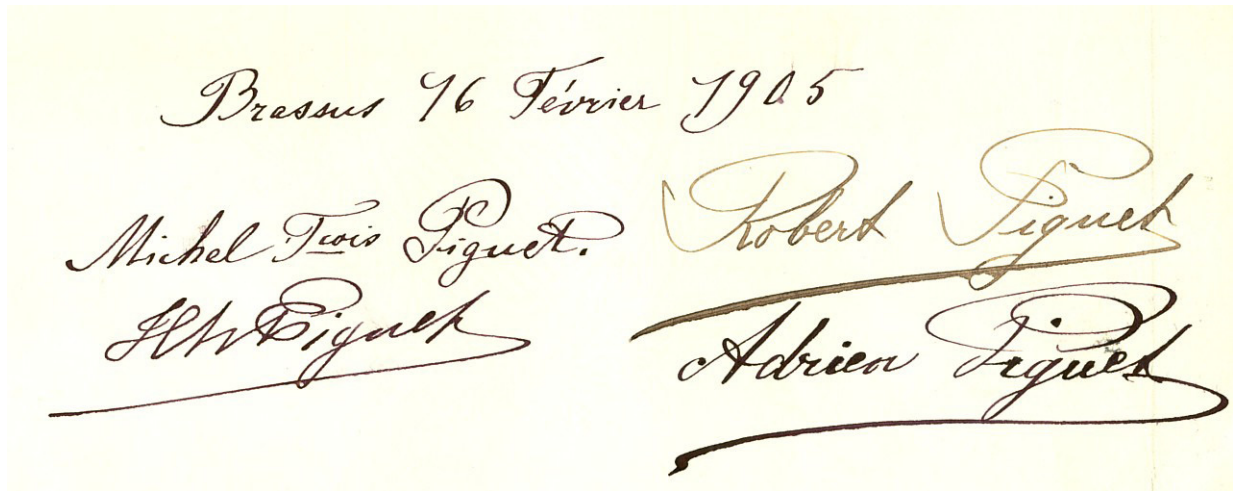 Brassus 16 Février 1905
Michel Fçois Piguet.
Robert Piguet
Piguet
Adrien Piguet